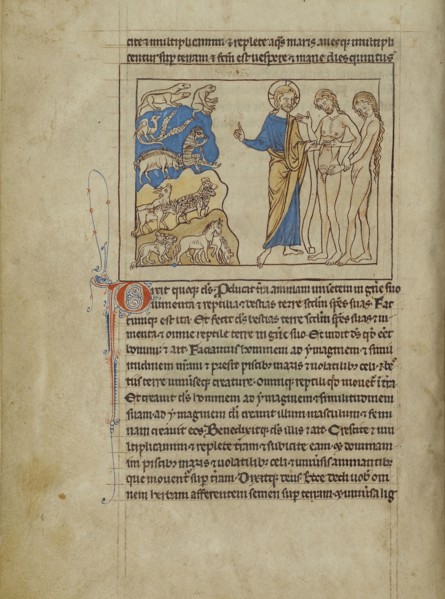 cite & multiplicamini & replete aq̄s maris. auesq; multipli
centur sup terram & f̄cm est uespere & mane dies quintus
Dixit quoq; d̄s. Producat t̄ra animam uiuentem in gn̄e suo
iumenta & reptilia & bestias terre s̄cdm sp̄es suas. Fac
tumq; est ita. Et fecit d̄s bestias terre s̄cdm sp̄es suas & iu
menta & omne reptile terre in gn̄e suo. Et uidit d̄s qd̄ eēt
bonum & ait. Faciamus hominem ad ymaginem & simili
tudinem nr̄am & presit piscibȝ maris & uolatilibȝ celi & b̄
tus terre uniuseq; creature. Omniq; reptili qd̄ mouet̄ ī t̄ra
Et creauit d̄s hominem ad ymaginem & similitudinem
suam. ad ymaginem dī creauit illum masculum & femi
nam creauit eos. Benedixitq; d̄s illis & ait. Crescite & mul
tiplicamini & replete terram & subicite eam. & dominam
ini piscibȝ maris & uolatilibȝ celi & uniuīsis animantibȝ
que mouent̄ sup t̄ram. Dixitq; deus. Ecce dedi uobīs om
nem herbam afferentem semen sup terram. & uniuīsa lig